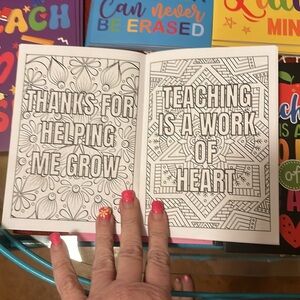 EACH
Can never
BE ERASED
MIN
THANKS FOR
HELPING
ME GROW
TEACHING
IS A WORK
OF
HEART
of